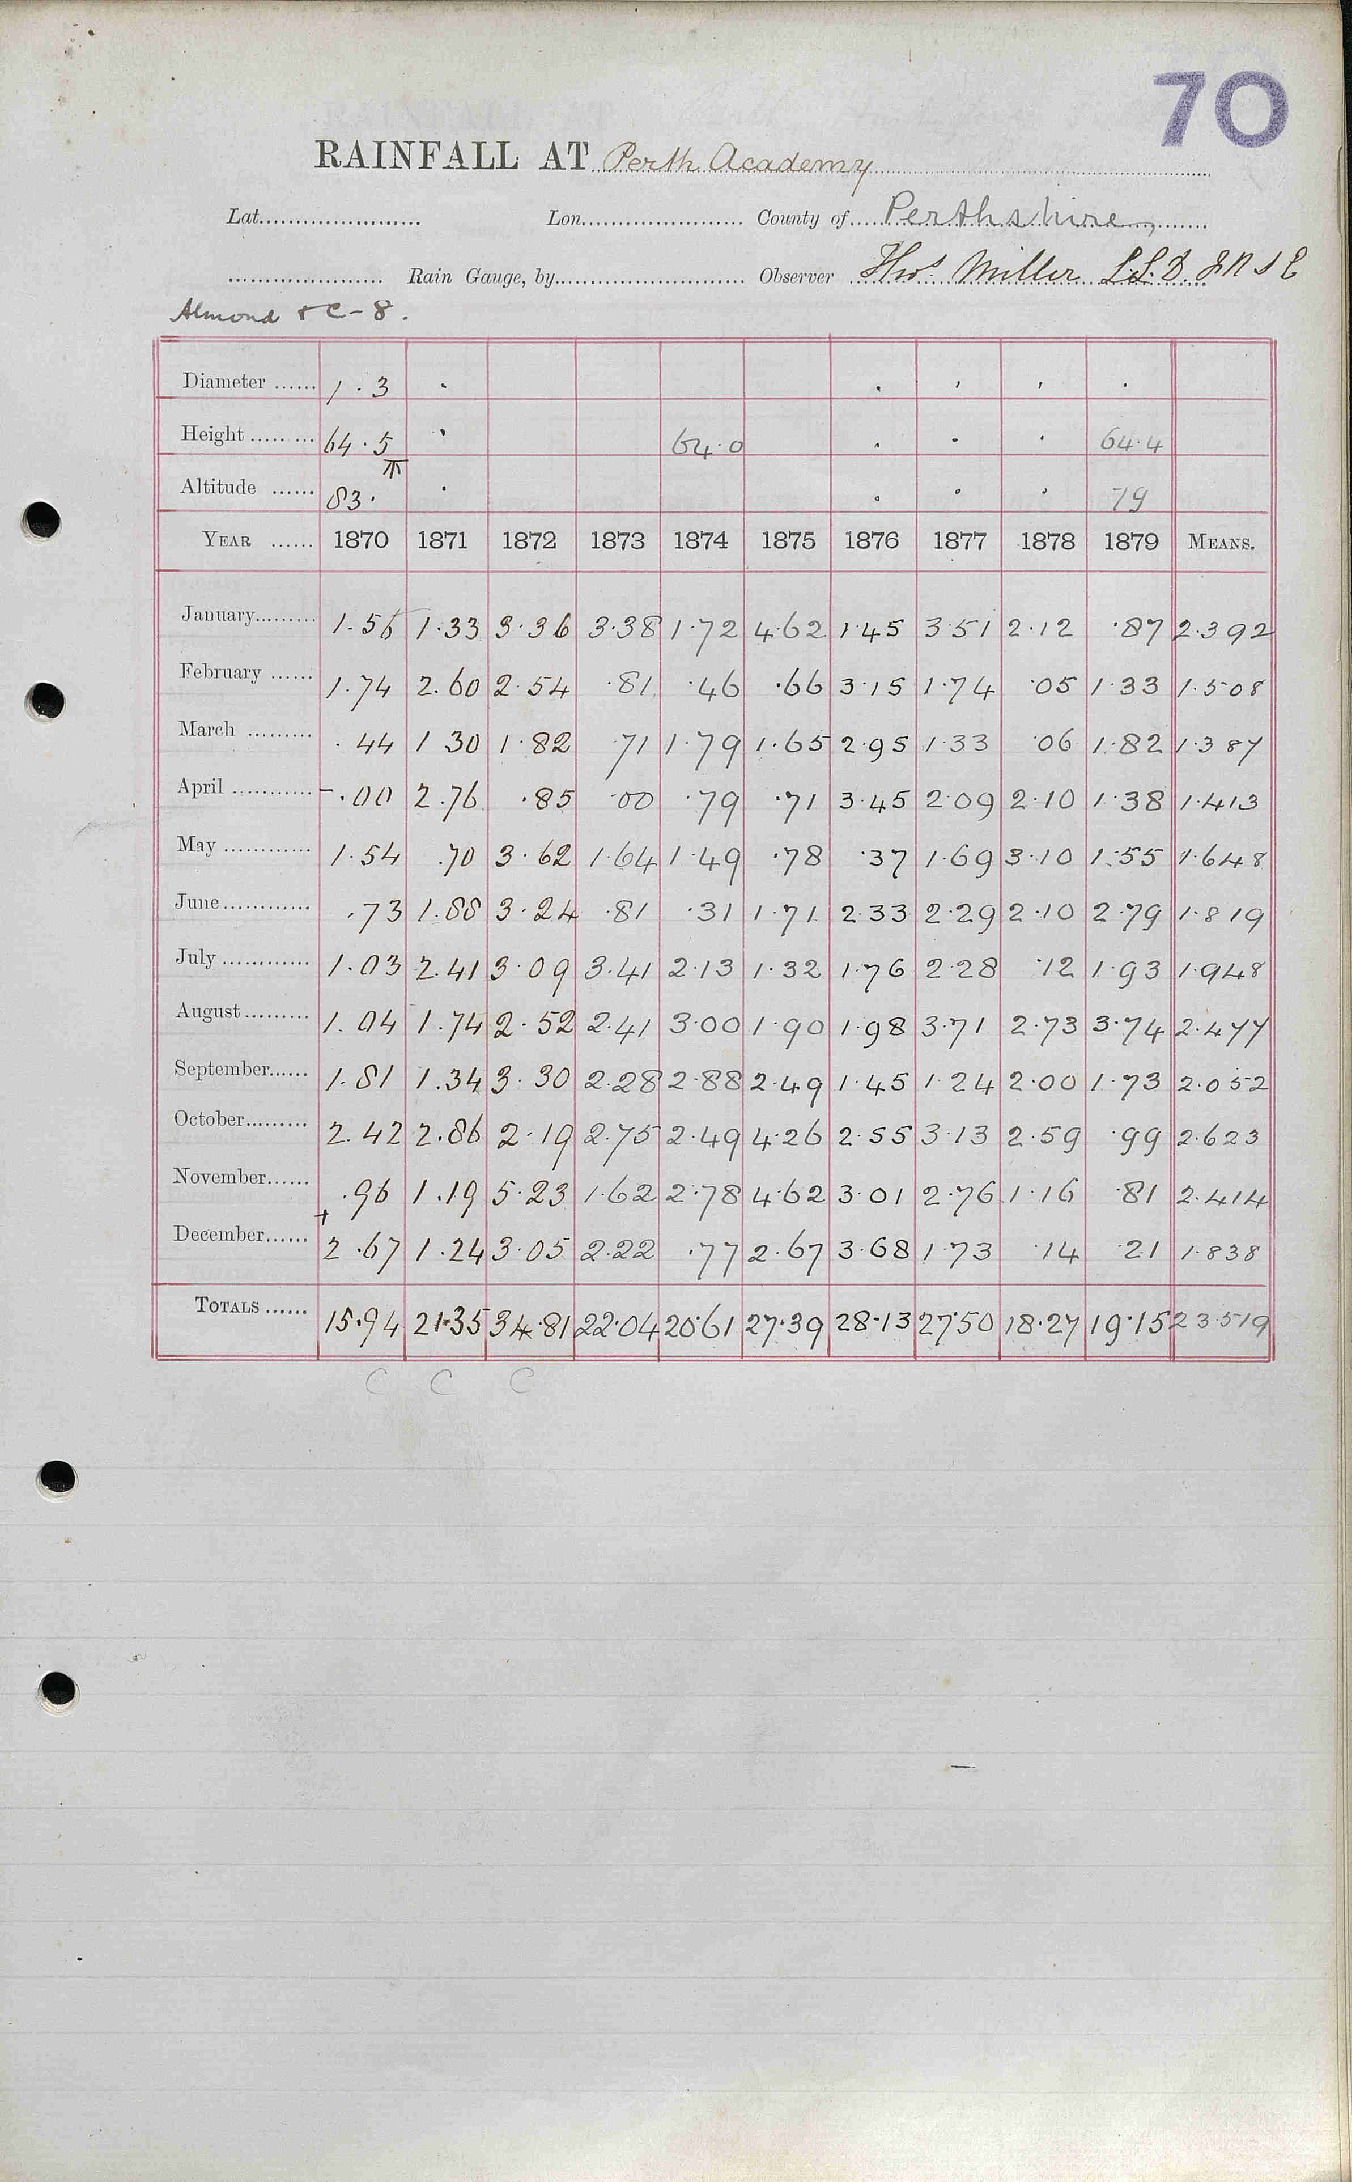 70
RAINFALL AT Perth Academy
Lat. Lon. County of Perthshire
Rain Gauge, by Observer Thos. Miller L.L.D. F.R.S.E
Almond & C-8.
Diameter 1.3
Height 64.5 64.0 64.4
Altitude 83. 79
YEAR 1870 1871 1872 1873 1874 1875 1876 1877 1878 1879 MEANS.
January 1.56 1.33 3.36 3.38 1.72 4.62 1.45 3.51 2.12 .87 2.392
February 1.74 2.60 2.54 .81 .46 .66 3.15 1.74 .05 1.33 1.508
March .44 1.30 1.82 .71 1.79 1.65 2.95 1.33 .06 1.82 1.387
April -.00 2.76 .85 .00 .79 .71 3.45 2.09 2.10 1.38 1.413
May 1.54 .70 3.62 1.64 1.49 .78 .37 1.69 3.10 1.55 1.648
June .73 1.88 3.24 .81 .31 1.71 2.33 2.29 2.10 2.79 1.819
July 1.03 2.41 3.09 3.41 2.13 1.32 1.76 2.28 .12 1.93 1.948
August 1.04 1.74 2.52 2.41 3.00 1.90 1.98 3.71 2.73 3.74 2.477
September 1.81 1.34 3.30 2.28 2.88 2.49 1.45 1.24 2.00 1.73 2.052
October 2.42 2.86 2.19 2.75 2.49 4.26 2.55 3.13 2.59 .99 2.623
November .96 1.19 5.23 1.62 2.78 4.62 3.01 2.76 1.16 .81 2.414
December 2.67 1.24 3.05 2.22 .77 2.67 3.68 1.73 .14 .21 1.838
TOTALS 15.94 21.35 34.81 22.04 20.61 27.39 28.13 27.50 18.27 19.15 23.519
C C C